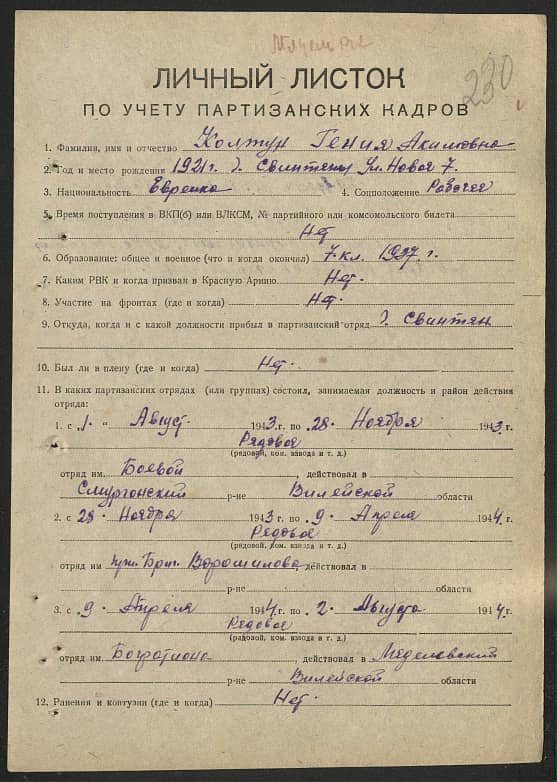 230
ЛИЧНЫЙ ЛИСТОК
ПО УЧЕТУ ПАРТИЗАНСКИХ КАДРОВ
1. Фамилия, имя и отчество Холтун Гения Акимовна
2. Год и место рождения 1921 г. г. Свинтяны Ул. Новая 7.
3. Национальность Еврейка 4. Соцположение Рабочее
5. Время поступления в ВКП(б) или ВЛКСМ, № партийного или комсомольского билета
Нет
6. Образование: общее и военное (что и когда окончил) 7-кл. 1937 г.
7. Каким РВК и когда призван в Красную Армию Нет.
8. Участие на фронтах (где и когда) Нет.
9. Откуда, когда и с какой должности прибыл в партизанский отряд г. Свинтян
10. Был ли в плену (где и когда) Нет.
11. В каких партизанских отрядах (или группах) состоял, занимаемая должность и район действия
отряда:
1. с „1 “ Август 1943 г. по 28 Ноября 1943 г.
Рядовое
(рядовой, ком. взвода и т. д.)
отряд им. Боевой, действовал в
Смургонский р-не Вилейской области
2. с 28 Ноября 1943 г. по 9 Апреля 1944 г.
Рядовое
(рядовой, ком. взвода и т. д.)
отряд им. при Бриг. Ворошилова, действовал в
р-не области
3. с 9 Апреля 1944 г. по 2 Августа 1944 г.
Рядовое
(рядовой, ком. взвода и т. д.)
отряд им. Богратиона, действовал в Меделовский
р-не Вилейской области
12. Ранения и контузии (где и когда) Нет.